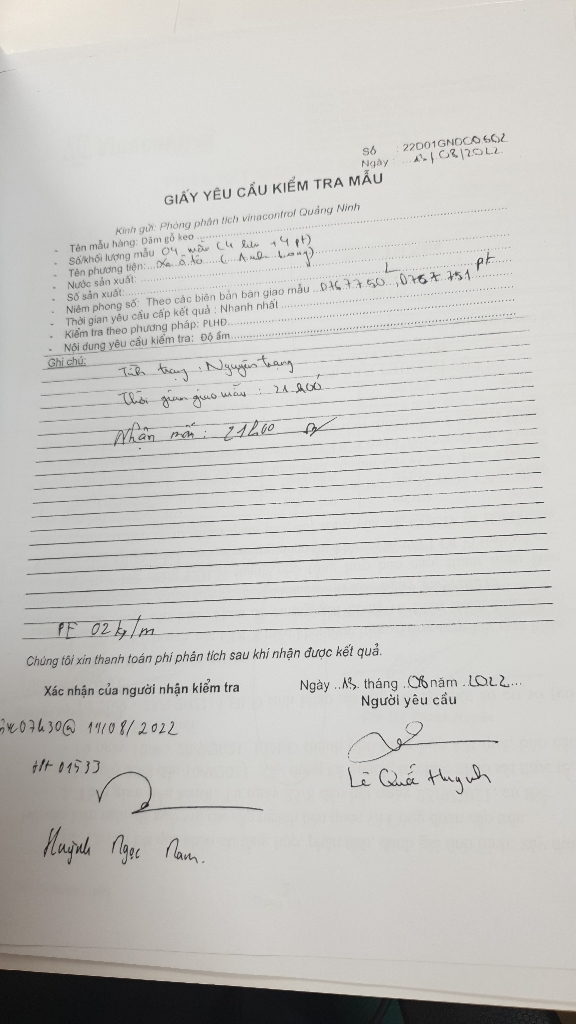 Số : 22D01GNDC0502
Ngày : 13/08/2022
GIẤY YÊU CẦU KIỂM TRA MẪU
Kính gửi: Phòng phân tích vinacontrol Quảng Ninh
- Tên mẫu hàng: Dăm gỗ keo
- Số/khối lượng mẫu 04 mẫu (4 lưu + 4 pt)
- Tên phương tiện: Xe ô tô ( Anh Long)
- Nước sản xuất:
- Số sản xuất:
- Niêm phong số: Theo các biên bản bàn giao mẫu 0767750 L, 0767 751 pt
- Thời gian yêu cầu cấp kết quả : Nhanh nhất
- Kiểm tra theo phương pháp: PLHĐ
- Nội dung yêu cầu kiểm tra: Độ ẩm
Ghi chú:
Tình trạng : Nguyên trạng
Thời gian giao mẫu : 21h00
Nhận mẫu : 21h00
PE 02kg/m
Chúng tôi xin thanh toán phí phân tích sau khi nhận được kết quả.
Xác nhận của người nhận kiểm tra
Ngày 13 tháng 08 năm 2022
Người yêu cầu
07h30@ 14/08/2022
01533
Lê Quốc Huynh
Huỳnh Ngọc Nam.